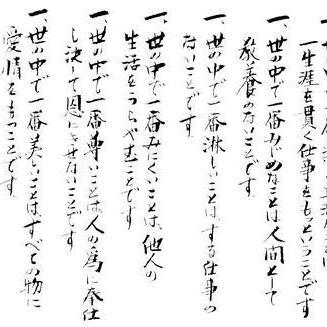 一生涯を貫く仕事をもつということです
一、世の中で一番みじめなことは人間として
教養のないことです
一、世の中で一番淋しいことはする仕事の
ないことです
一、世の中で一番みにくいことは、他人の
生活をうらやむことです
一、世の中で一番尊いことは人の為に奉仕
し決して恩にきせないことです
一、世の中で一番美しいことは、すべての物に
愛情をもつことです